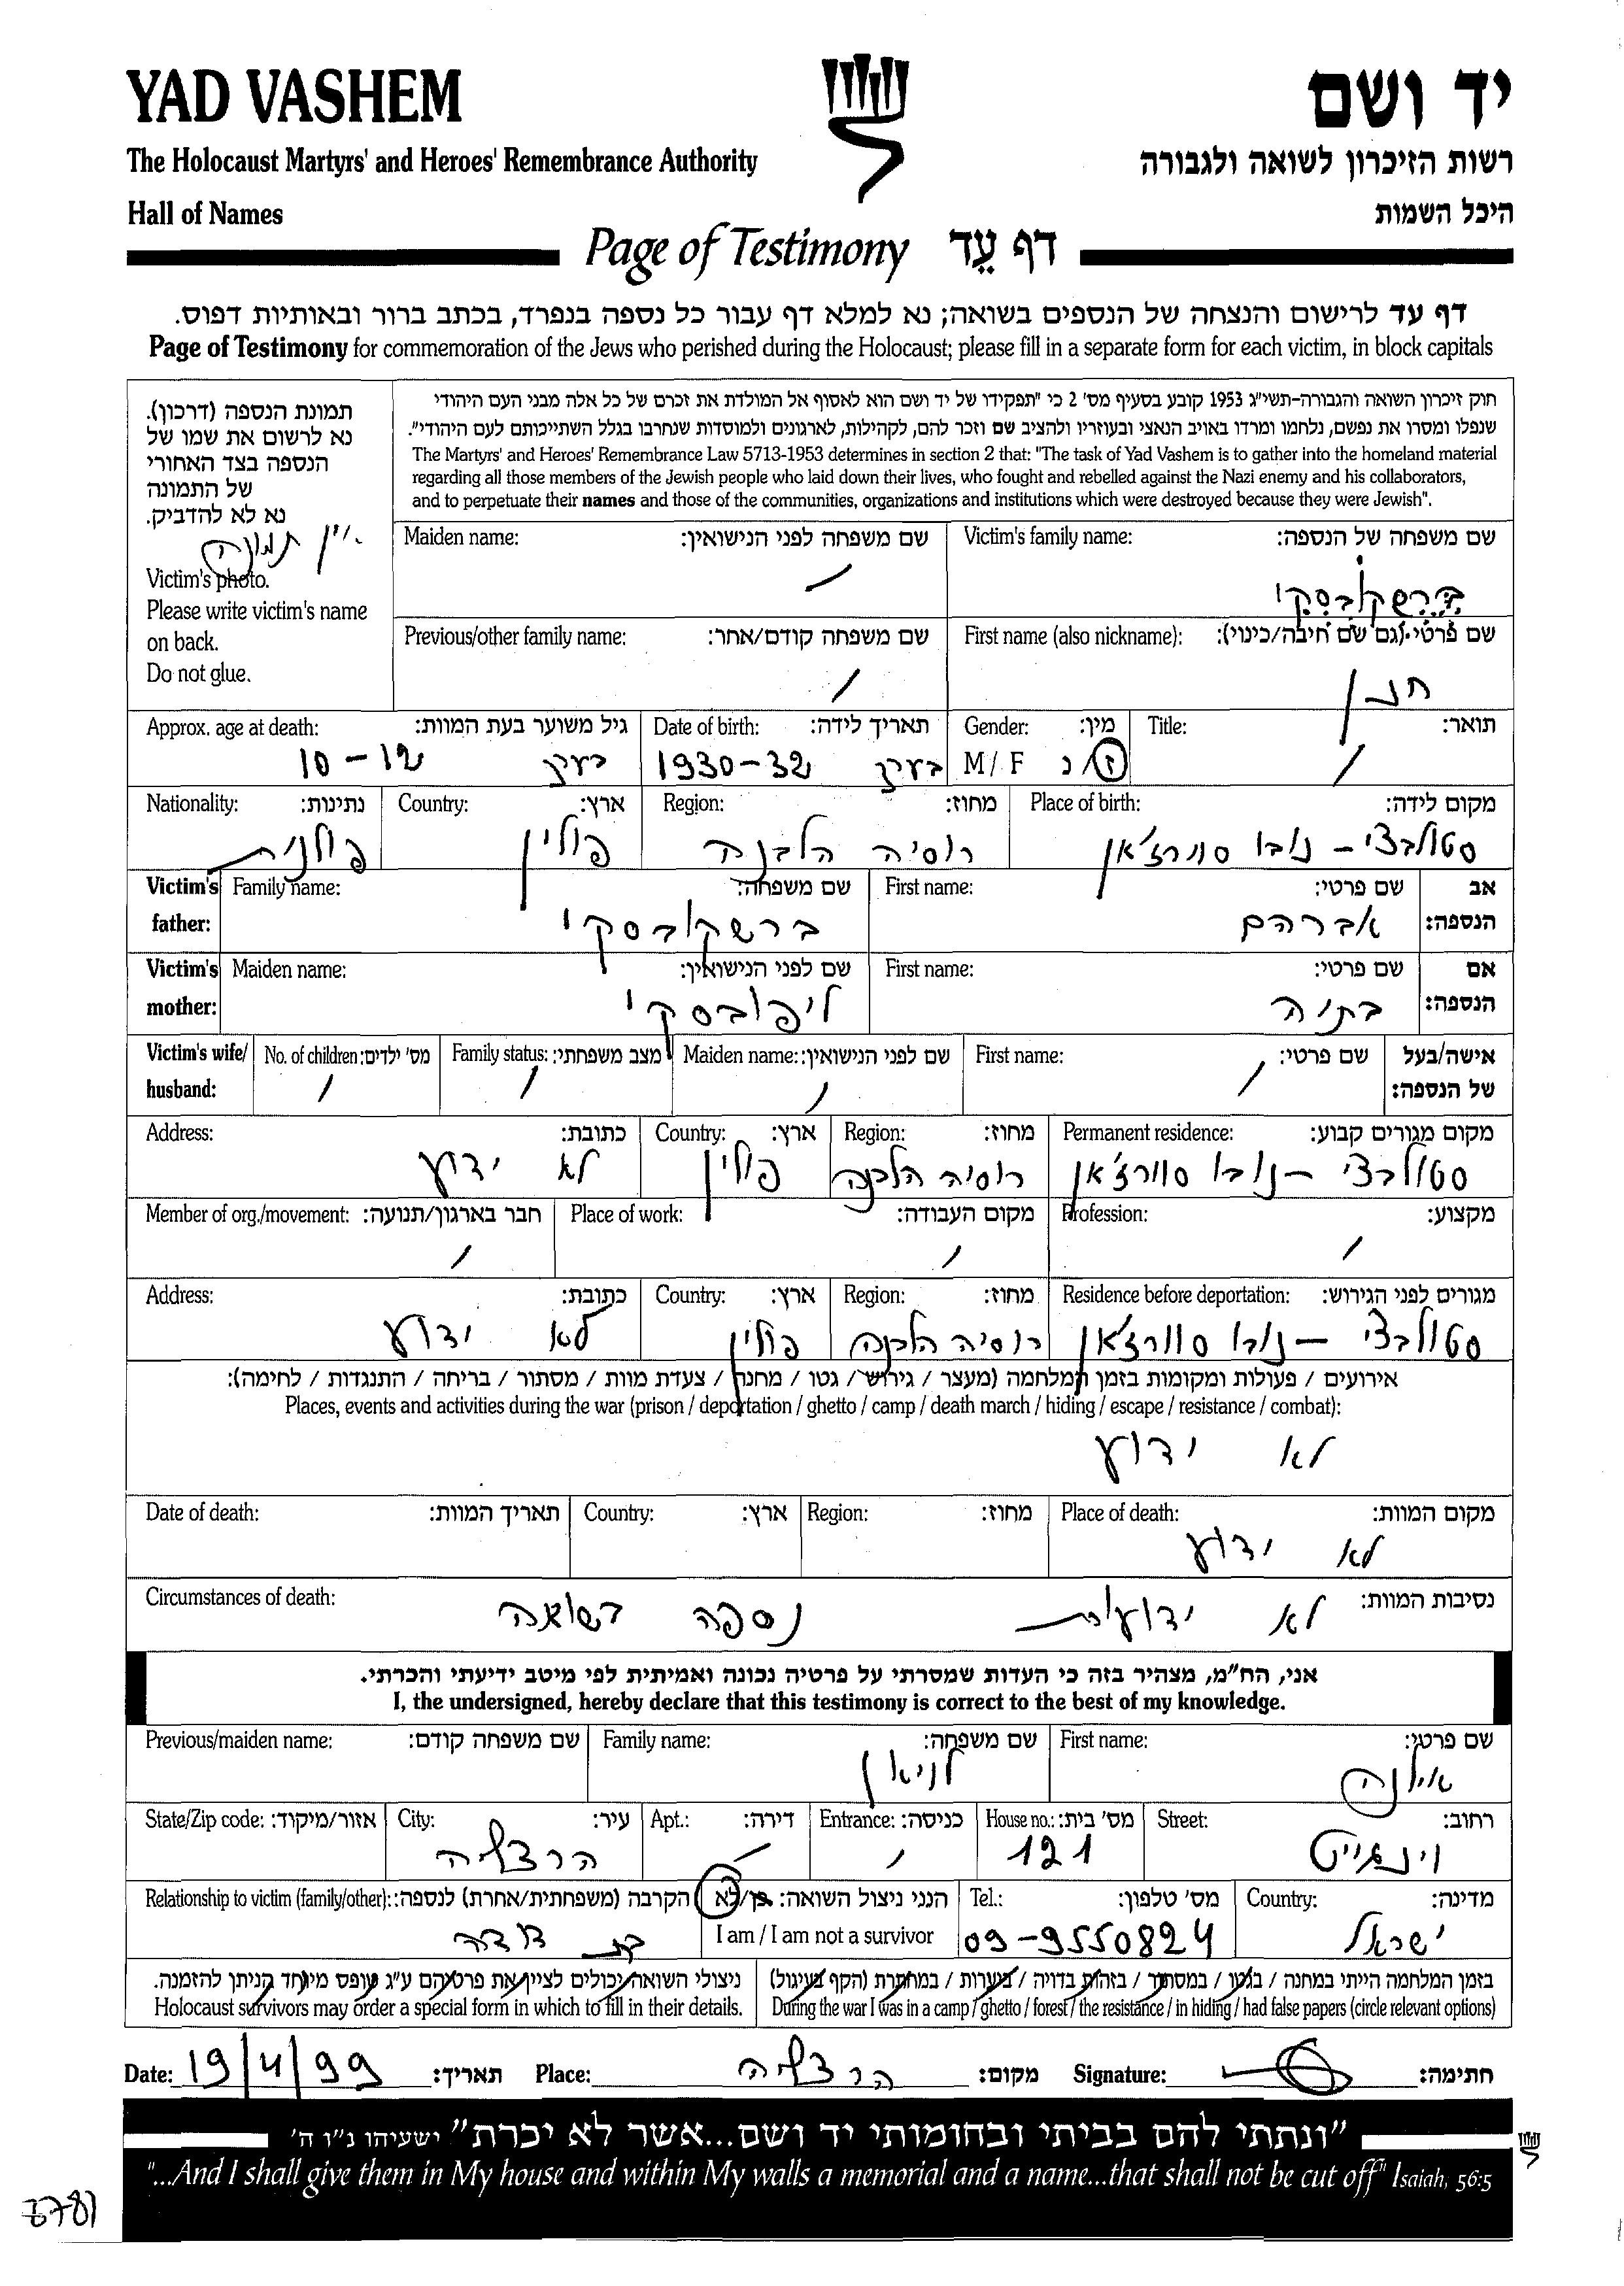 YAD VASHEM
יד ושם
The Holocaust Martyrs' and Heroes' Remembrance Authority
רשות הזיכרון לשואה ולגבורה
Hall of Names
היכל השמות
Page of Testimony דף עֵד
דף עד לרישום והנצחה של הנספים בשואה; נא למלא דף עבור כל נספה בנפרד, בכתב ברור ובאותיות דפוס.
Page of Testimony for commemoration of the Jews who perished during the Holocaust; please fill in a separate form for each victim, in block capitals
תמונת הנספה (דרכון).
נא לרשום את שמו של
הנספה בצד האחורי
של התמונה
נא לא להדביק.
אין תמונה
Victim's photo.
Please write victim's name
on back.
Do not glue.
חוק זיכרון השואה והגבורה-תשי"ג 1953 קובע בסעיף מס' 2 כי "תפקידו של יד ושם הוא לאסוף אל המולדת את זכרם של כל אלה מבני העם היהודי
שנפלו ומסרו את נפשם, נלחמו ומרדו באויב הנאצי ובעוזריו ולהציב שם וזכר להם, לקהילות, לארגונים ולמוסדות שנחרבו בגלל השתייכותם לעם היהודי".
The Martyrs' and Heroes' Remembrance Law 5713-1953 determines in section 2 that: "The task of Yad Vashem is to gather into the homeland material
regarding all those members of the Jewish people who laid down their lives, who fought and rebelled against the Nazi enemy and his collaborators,
and to perpetuate their names and those of the communities, organizations and institutions which were destroyed because they were Jewish".
Victim's family name: שם משפחה של הנספה:
ברשקובסקי
Maiden name: שם משפחה לפני הנישואין:
/
First name (also nickname): שם פרטי (גם שם חיבה/כינוי):
חנן
Previous/other family name: שם משפחה קודם/אחר:
/
Title: תואר:
/
Gender: מין:
M / F ז/נ
Date of birth: תאריך לידה:
בערך 1930-32
Approx. age at death: גיל משוער בעת המוות:
בערך 10-12
Place of birth: מקום לידה:
סטולבצי - נובו סוורז'אן
Region: מחוז:
רוסיה הלבנה
Country: ארץ:
פולין
Nationality: נתינות:
פולנית
Victim's father: אב הנספה:
First name: שם פרטי:
אברהם
Family name: שם משפחה:
ברשקובסקי
Victim's mother: אם הנספה:
First name: שם פרטי:
בתיה
Maiden name: שם לפני הנישואין:
ליפובסקי
Victim's wife/ husband: אישה/בעל של הנספה:
First name: שם פרטי:
/
Maiden name: שם לפני הנישואין:
/
Family status: מצב משפחתי:
/
No. of children: מס' ילדים:
/
Permanent residence: מקום מגורים קבוע:
סטולבצי - נובו סוורז'אן
Region: מחוז:
רוסיה הלבנה
Country: ארץ:
פולין
Address: כתובת:
לא ידוע
Profession: מקצוע:
/
Place of work: מקום העבודה:
/
Member of org./movement: חבר בארגון/תנועה:
/
Residence before deportation: מגורים לפני הגירוש:
סטולבצי - נובו סוורז'אן
Region: מחוז:
רוסיה הלבנה
Country: ארץ:
פולין
Address: כתובת:
לא ידוע
אירועים / פעולות ומקומות בזמן המלחמה (מעצר / גירוש / גטו / מחנה / צעדת מוות / מסתור / בריחה / התנגדות / לחימה):
Places, events and activities during the war (prison / deportation / ghetto / camp / death march / hiding / escape / resistance / combat):
לא ידוע
Place of death: מקום המוות:
לא ידוע
Region: מחוז:
Country: ארץ:
Date of death: תאריך המוות:
Circumstances of death: נסיבות המוות:
לא ידועות נספה בשואה
אני, הח"מ, מצהיר בזה כי העדות שמסרתי על פרטיה נכונה ואמיתית לפי מיטב ידיעתי והכרתי.
I, the undersigned, hereby declare that this testimony is correct to the best of my knowledge.
First name: שם פרטי:
אילנה
Family name: שם משפחה:
לניאון
Previous/maiden name: שם משפחה קודם:
Street: רחוב:
וינגייט
House no.: מס' בית:
121
Entrance: כניסה:
/
Apt.: דירה:
/
City: עיר:
הרצליה
State/Zip code: אזור/מיקוד:
Country: מדינה:
ישראל
Tel.: מס' טלפון:
09-9550824
הנני ניצול השואה: כן/לא
I am / I am not a survivor
Relationship to victim (family/other): הקרבה (משפחתית/אחרת) לנספה:
בת דודה
בזמן המלחמה הייתי במחנה / בגטו / במסתור / בזהות בדויה / ביערות / במחתרת (הקף בעיגול)
During the war I was in a camp / ghetto / forest / the resistance / in hiding / had false papers (circle relevant options)
ניצולי השואה יכולים לציין את פרטיהם ע"ג טופס מיוחד הניתן להזמנה.
Holocaust survivors may order a special form in which to fill in their details.
Date: 19/4/99 תאריך: Place: הרצליה מקום: Signature: חתימה:
"ונתתי להם בביתי ובחומותי יד ושם...אשר לא יכרת" ישעיהו נ"ו ה'
"...And I shall give them in My house and within My walls a memorial and a name...that shall not be cut off" Isaiah, 56:5